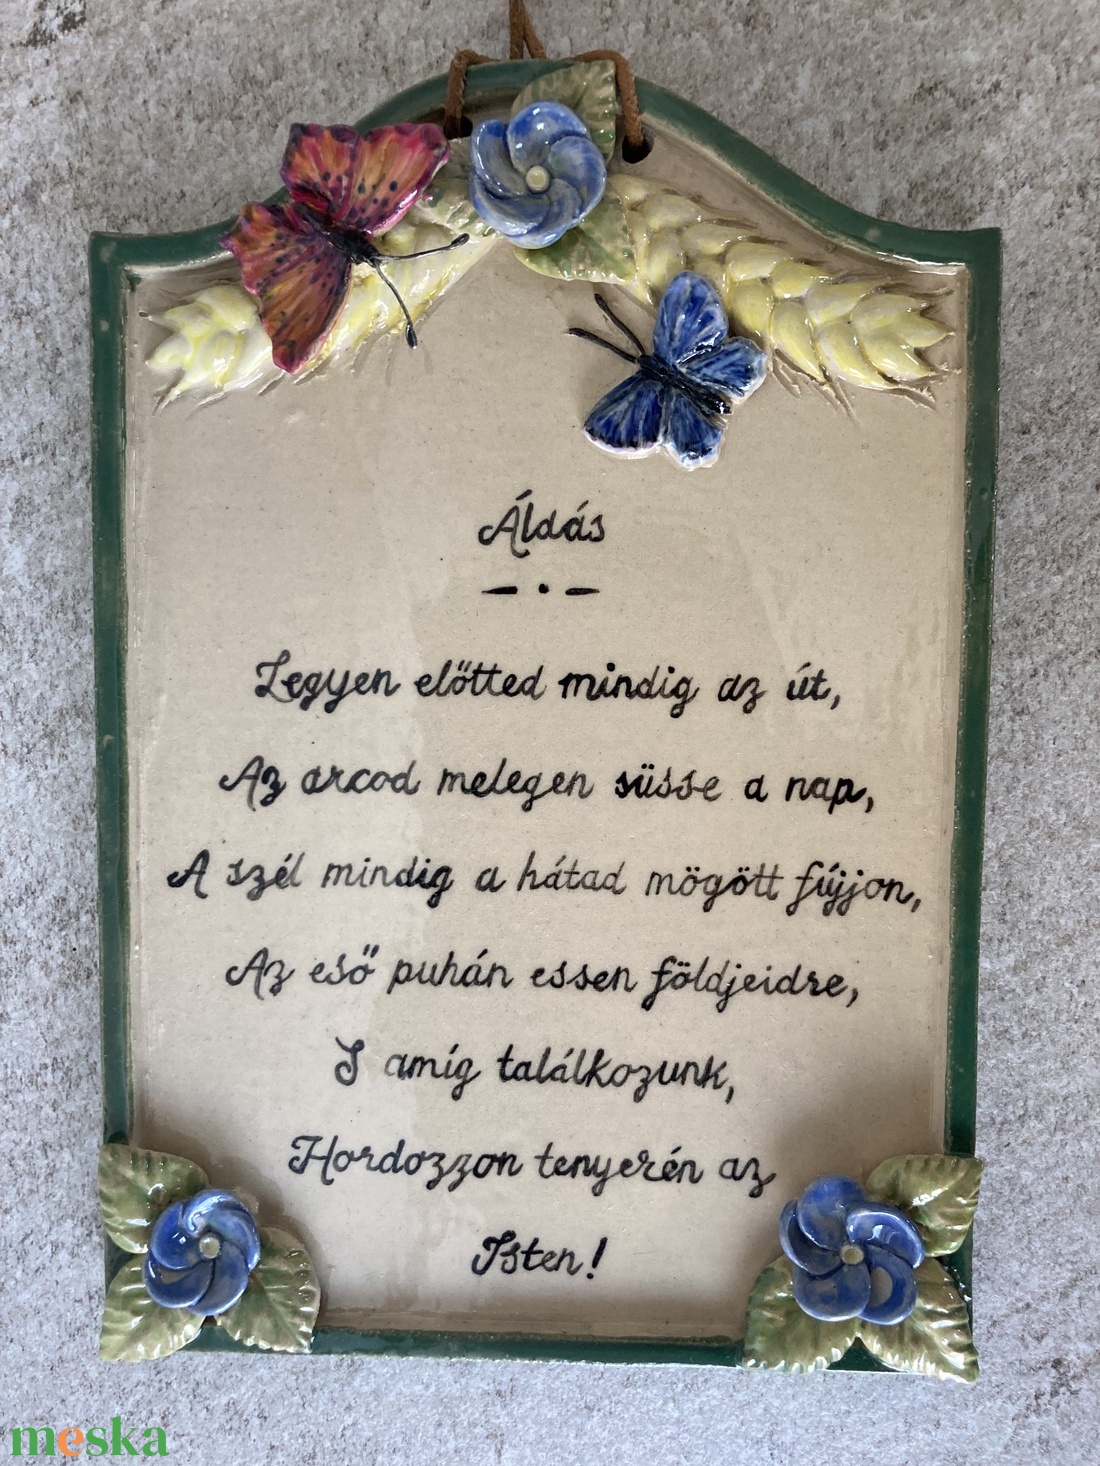 Áldás
Legyen előtted mindig az út,
Az arcod melegen süsse a nap,
A szél mindig a hátad mögött fújjon,
Az eső puhán essen földjeidre,
S amíg találkozunk,
Hordozzon tenyerén az
Isten!
meska